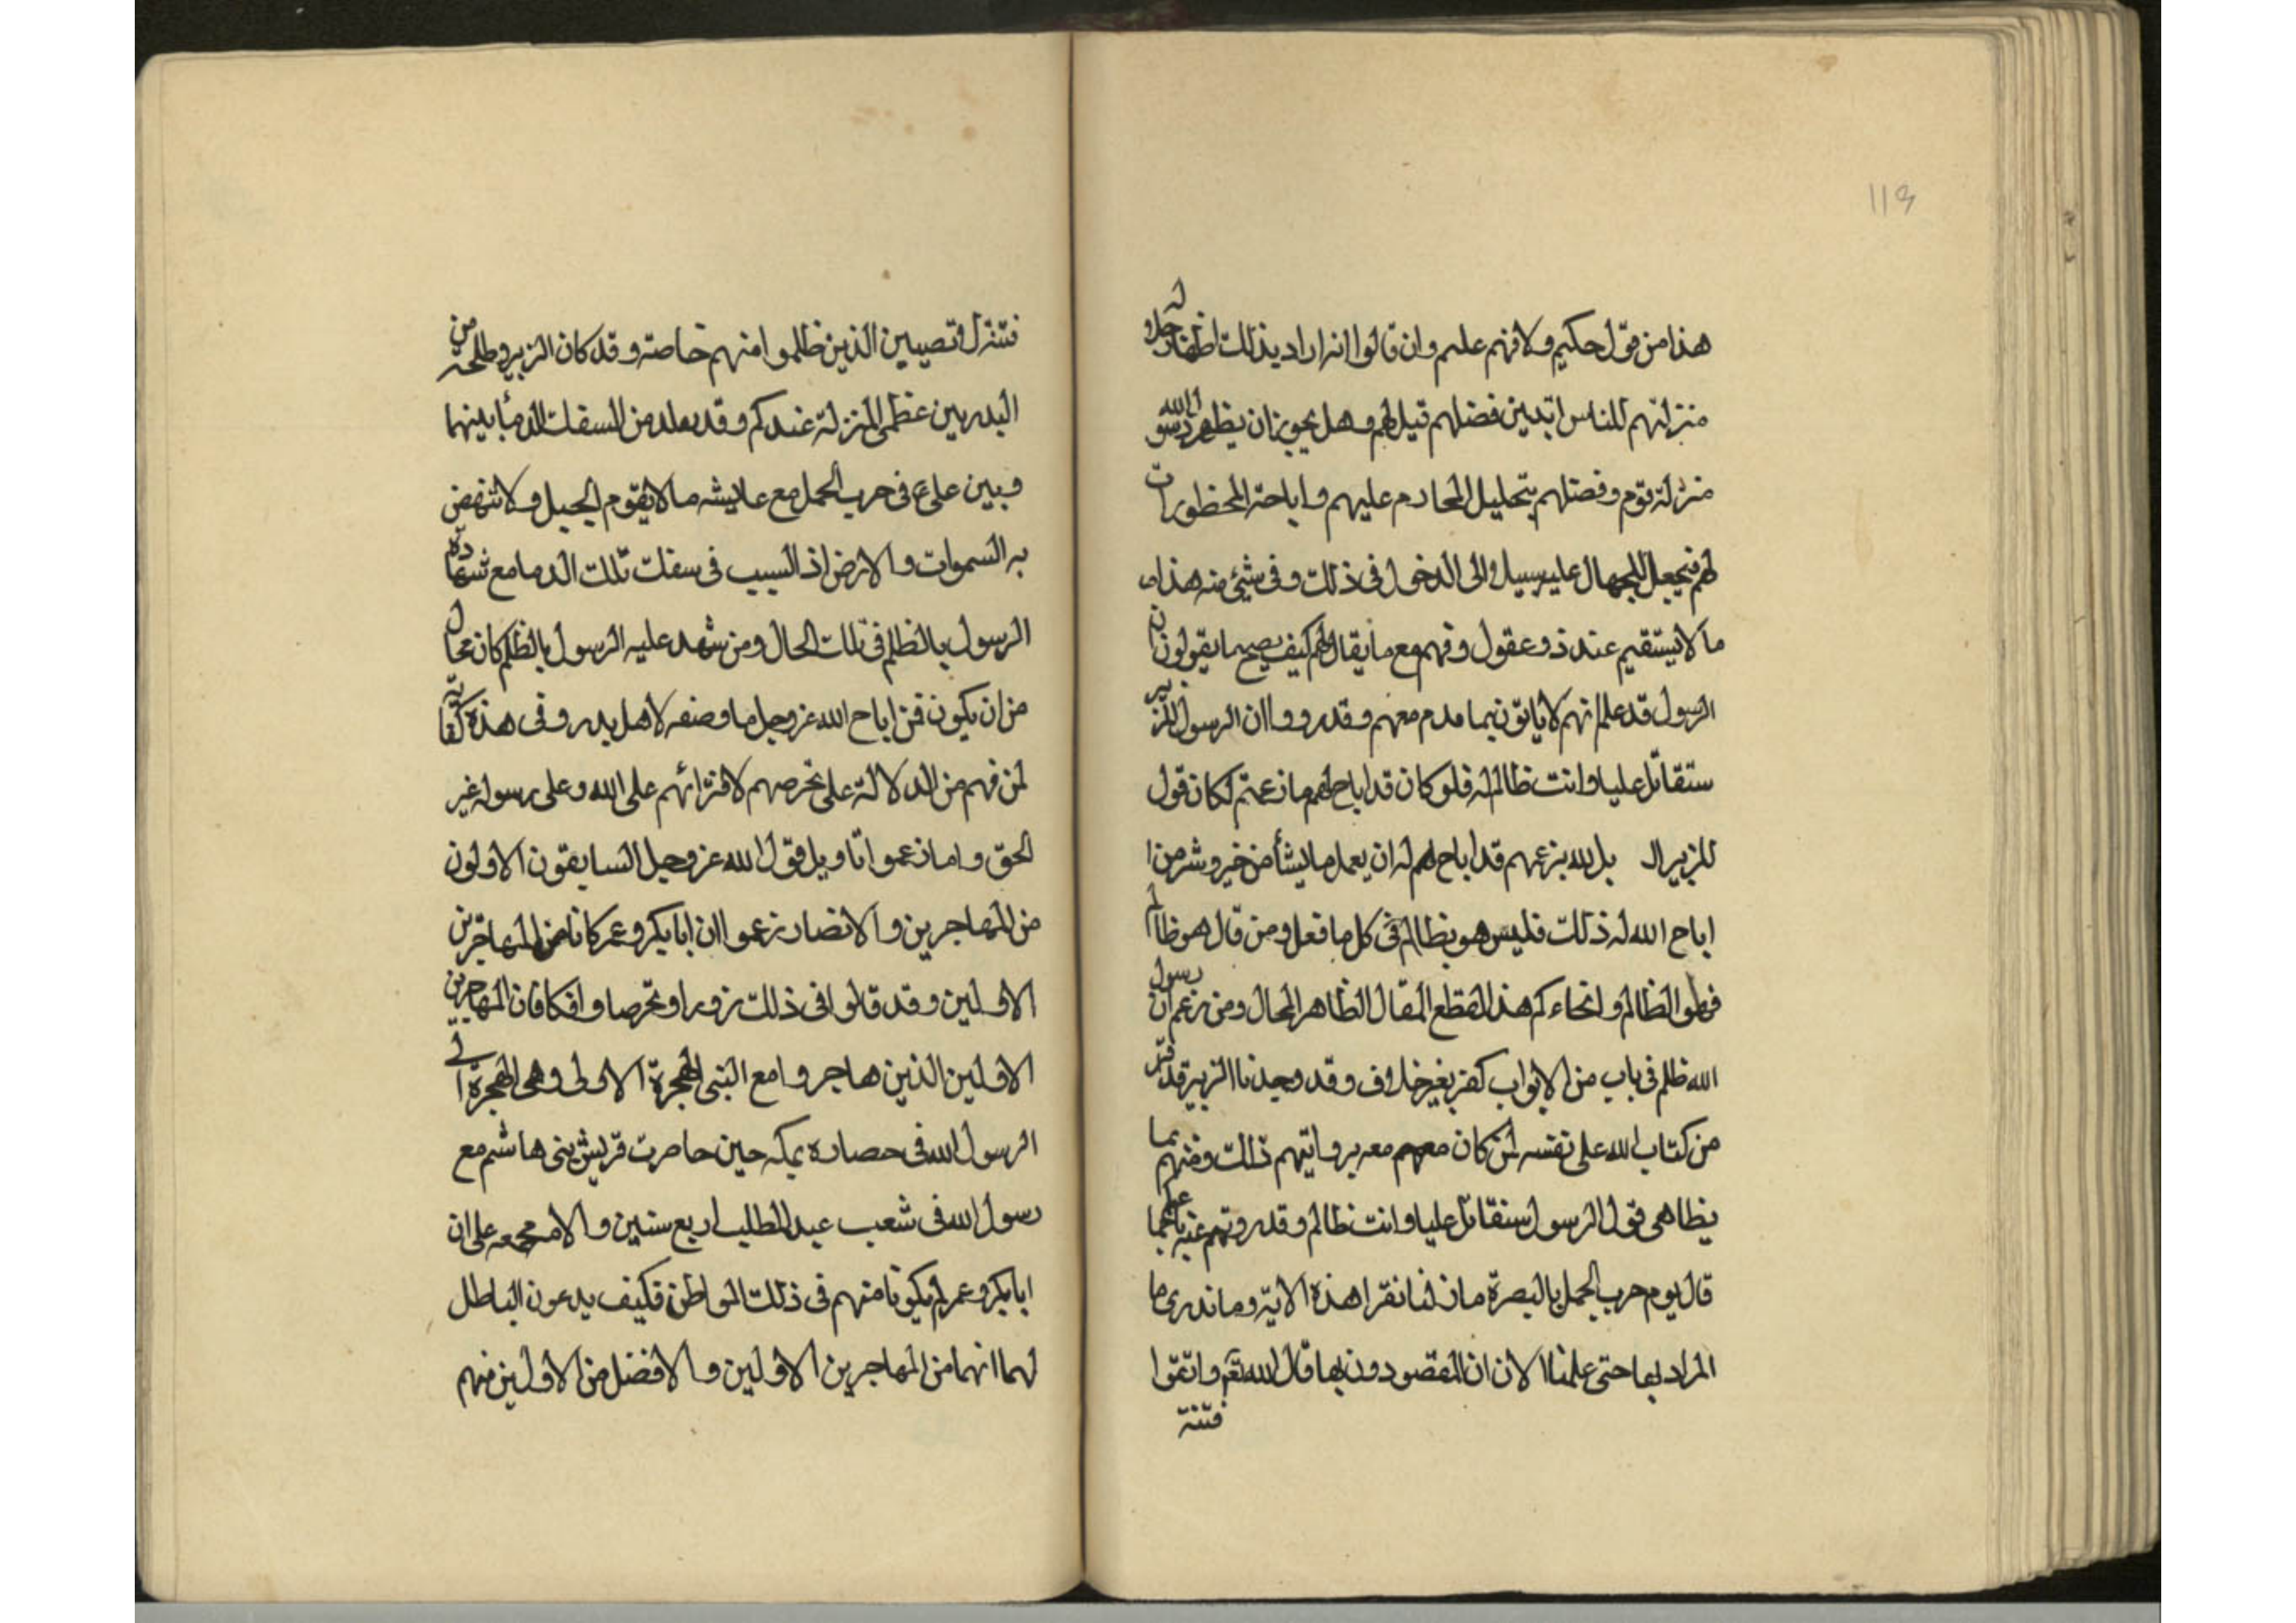 113
هذا من قول حكيم ولا فهم عليم وان قالوا انه اراد بذلك اظهار جلاله
منزلتهم للناس اتبين فضلهم قيل لهم وهل يجوز ان يظهر رسول الله
منزلة قوم وفضلهم بتحليل المحارم عليهم واباحة المحظورات
لهم فيجعل للجهال عليه سبيلا والى الدخول فى ذلك وفى شيئ منه هذا
ما لا يستقيم عند ذو عقول وفهم مع ما يقال لهم كيف يصح ما يقولون ان
الرسول قد علم انهم لا ياتون بما مدم معهم وقد رووا ان الرسول للزبير
ستقاتل عليا وانت ظالم له فلو كان قد اباح لهم ما زعمتم لكان قول
للزبير ال بل لله بزعمهم قد اباح لهم له ان يعمل ما يشأ من خير وشر من ا
اباح الله له ذلك فليس هو بظالم فى كل ما فعل ومن قال هو ظالم
فهو الظالم وانحاءكم هذا لقطع المقال الظاهر المحال ومن زعم ان رسول
الله ظلم فى باب من الابواب كفر بغير خلاف وقد وجدنا الزبير قد قر
من كتاب الله على نفسه لمن كان معهم معه بروايتهم ذلك ومنهم بما
يظاهى قول الرسول ستقاتل عليا وانت ظالم وقد رويتم عنه
قال يوم حرب الجمل بالبصرة ما زلنا نقرا هذه الاية وما ندرى ما
المراد بها حتى علمنا الان ان المقصودون بها قال الله تعم واتقوا
فتنة
فتنزل وتصيبن الذين ظلموا منهم خاصة وقد كان الزبير وطلحة من
البدريين عظمى المنزلة عندكم وقد بعلد من السفلت الدما بينهما
وبين على ع فى حرب الجمل مع عايشه ما لا يقوم الجبل ولا تنهض
به السموات والارض اذ السبب فى سفلت تلك الدما مع شهادة
الرسول بالظلم فى تلك الحال ومن شهد عليه الرسول بالظلم كان محال
من ان يكون فمن اباح الله عز وجل ما وصفه لاهل بدر وفى هذه كفاية
لمن فهم من الدلالة على تخرصهم لافترائهم على الله وعلى رسوله غير
الحق واما زعموا تاويل قول الله عز وجل السابقون الاولون
من المهاجرين والانصار زعموا ان ابا بكر وعمر كانا من المهاجرين
الاولين وقد قالوا فى ذلك زورا وتخرصا وافكا فان المهاجرين
الاولين الذين هاجروا مع النبى الهجرة الاولى وهى الهجرة الى
الرسول الله فى حصاره بمكه حين حاصرت قريش بنى هاشم مع
رسول الله فى شعب عبد المطلب اربع سنين والامه مجمعه على ان
ابا بكر وعمر لم يكونا منهم فى ذلك المواطن فكيف يدعون الباطل
لهما انهما من المهاجرين الاولين والافضل من الاولين منهم